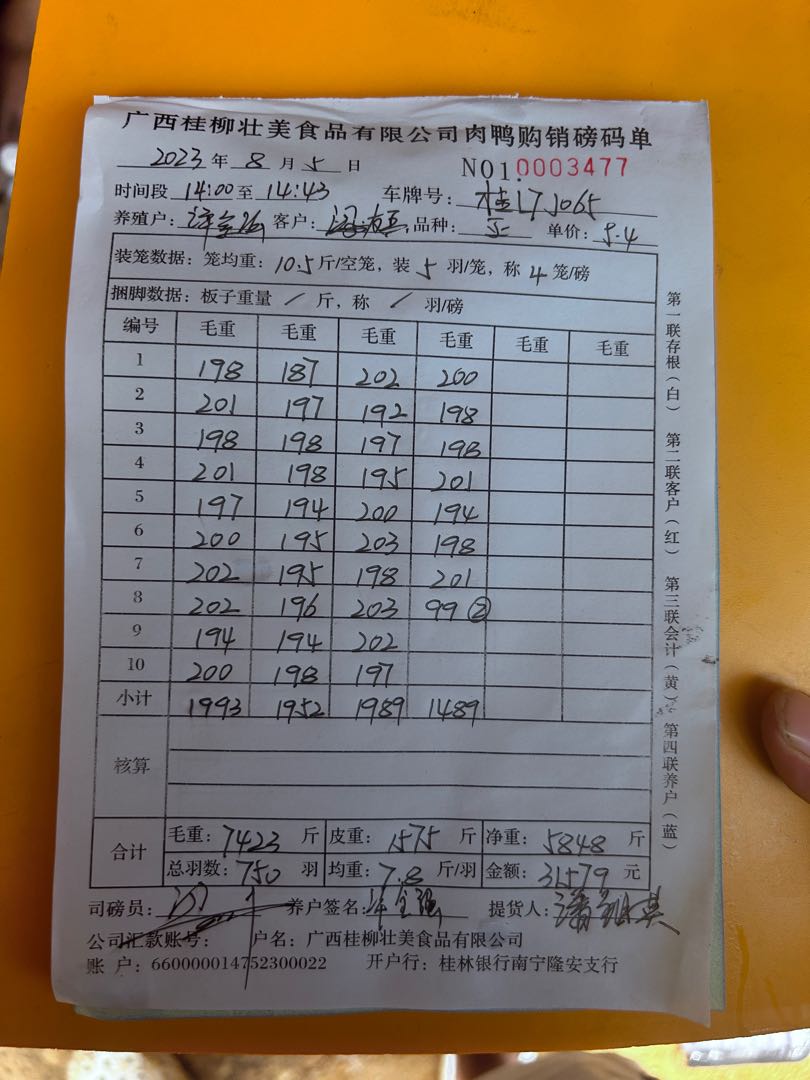 广西桂柳壮美食品有限公司肉鸭购销磅码单
2023年 8月 5日 NO1.0003477
时间段 14:00至 14:43 车牌号: 桂
养殖户: 客户: 品种: 单价: 5.4
装笼数据: 笼均重: 10.5斤/空笼, 装 5 羽/笼, 称 4 笼/磅
捆脚数据: 板子重量 / 斤, 称 / 羽/磅
编号 毛重 毛重 毛重 毛重 毛重 毛重
1 198 187 202 200
2 201 197 192 198
3 198 198 197 198
4 201 198 195 201
5 197 194 200 194
6 200 195 203 198
7 202 195 198 201
8 202 196 203 99 ②
9 194 194 202
10 200 198 197
小计 1993 1952 1989 1489
核算
合计 毛重: 7423 斤 皮重: 1575 斤 净重: 5848 斤
总羽数: 750 羽 均重: 7.8 斤/羽 金额: 31579 元
司磅员: 养户签名: 提货人:
公司汇款账号: 户名: 广西桂柳壮美食品有限公司
账 户: 660000014752300022 开户行: 桂林银行南宁隆安支行
第一联存根(白) 第二联客户(红) 第三联会计(黄) 第四联养户(蓝)